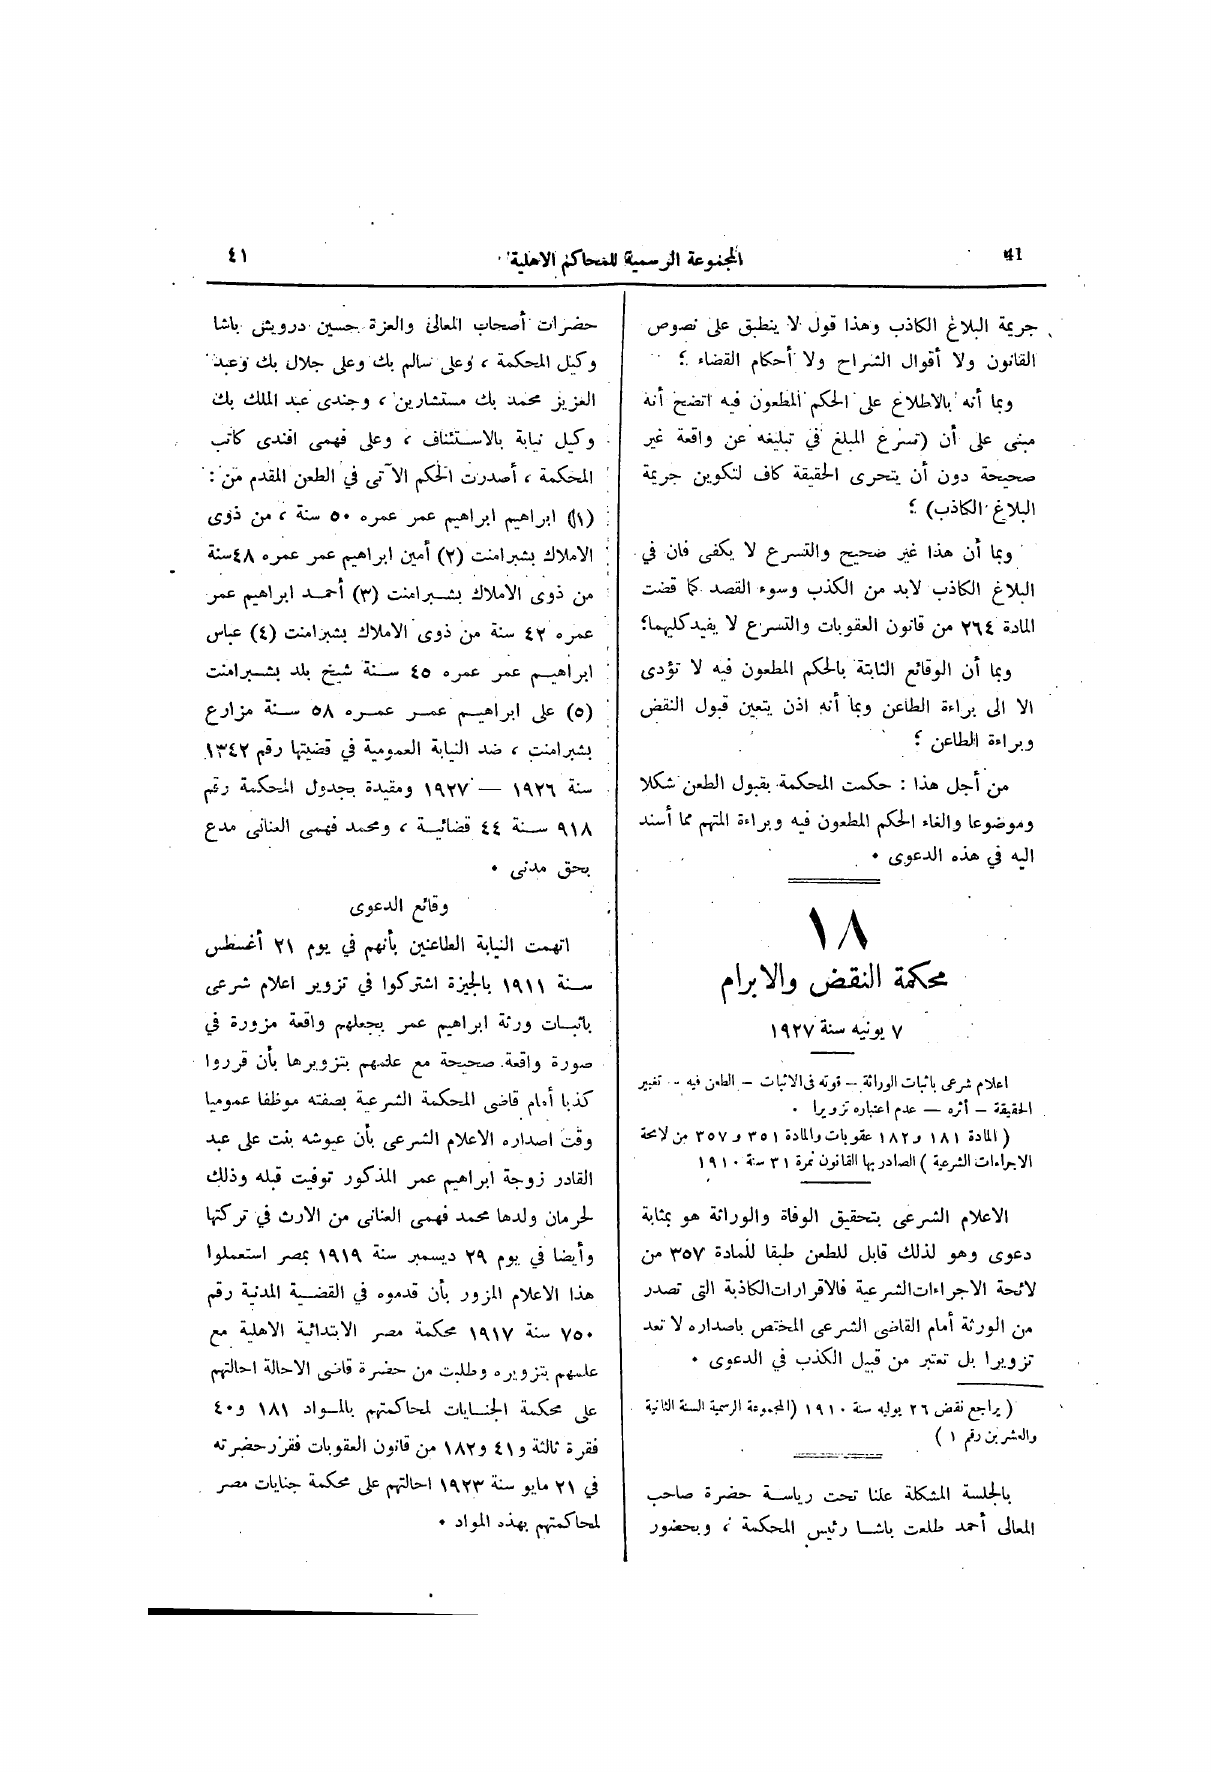 41
المجموعة الرسمية للمحاكم الاهلية
٤١
جريمة البلاغ الكاذب وهذا قول لا ينطبق على نصوص
القانون ولا أقوال الشراح ولا أحكام القضاء ؛
وبما أنه بالاطلاع على الحكم المطعون فيه اتضح أنه
مبنى على أن (تسرع المبلغ في تبليغه عن واقعة غير
صحيحة دون أن يتحرى الحقيقة كاف لتكوين جريمة
البلاغ الكاذب) ؛
وبما أن هذا غير صحيح والتسرع لا يكفى فان في
البلاغ الكاذب لابد من الكذب وسوء القصد كما قضت
المادة ٢٦٤ من قانون العقوبات والتسرع لا يفيد كليهما؛
وبما أن الوقائع الثابتة بالحكم المطعون فيه لا تؤدى
الا الى براءة الطاعن وبما أنه اذن يتعين قبول النقض
وبراءة الطاعن ؛
من أجل هذا : حكمت المحكمة بقبول الطعن شكلا
وموضوعا والغاء الحكم المطعون فيه وبراءة المتهم مما أسند
اليه في هذه الدعوى ٠
١٨
محكمة النقض والابرام
٧ يونيه سنة ١٩٢٧
اعلام شرعى باثبات الوراثة – قوته فى الاثبات – الطعن فيه – تغيير
الحقيقة – أثره – عدم اعتباره تزويرا ٠
( المادة ١٨١ و١٨٢ عقوبات والمادة ٣٥١ و٣٥٧ من لائحة
الاجراءات الشرعية ) الصادر بها القانون نمرة ٣١ سنة ١٩١٠
الاعلام الشرعى بتحقيق الوفاة والوراثة هو بمثابة
دعوى وهو لذلك قابل للطعن طبقا للمادة ٣٥٧ من
لائحة الاجراءات الشرعية فالاقرارات الكاذبة التى تصدر
من الورثة أمام القاضى الشرعى المختص باصداره لا تعد
تزويرا بل تعتبر من قبيل الكذب في الدعوى ٠
( يراجع نقض ٢٦ يوليه سنة ١٩١٠ (المجموعة الرسمية السنة الثانية
والعشرين رقم ١ )
بالجلسة المشكلة علنا تحت رياسة حضرة صاحب
المعالى أحمد طلعت باشا رئيس المحكمة ، وبحضور
حضرات أصحاب المعالى والعزة حسين درويش باشا
وكيل المحكمة ، وعلى سالم بك وعلى جلال بك وعبد
العزيز محمد بك مستشارين ، وجندى عبد الملك بك
وكيل نيابة بالاستئناف ، وعلى فهمى افندى كاتب
المحكمة ، أصدرت الحكم الآتى في الطعن المقدم من :
(١) ابراهيم ابراهيم عمر عمره ٥٠ سنة ، من ذوى
الاملاك بشبرامنت (٢) أمين ابراهيم عمر عمره ٤٨سنة
من ذوى الاملاك بشبرامنت (٣) أحمد ابراهيم عمر
عمره ٤٢ سنة من ذوى الاملاك بشبرامنت (٤) عباس
ابراهيم عمر عمره ٤٥ سنة شيخ بلد بشبرامنت
(٥) على ابراهيم عمر عمره ٥٨ سنة مزارع
بشبرامنت ، ضد النيابة العمومية في قضيتها رقم ١٣٤٢
سنة ١٩٢٦ — ١٩٢٧ ومقيدة بجدول المحكمة رقم
٩١٨ سنة ٤٤ قضائية ، ومحمد فهمى العنانى مدع
بحق مدنى ٠
وقائع الدعوى
اتهمت النيابة الطاعنين بأنهم في يوم ٢١ أغسطس
سنة ١٩١١ بالجيزة اشتركوا في تزوير اعلام شرعى
باثبات ورثة ابراهيم عمر بجعلهم واقعة مزورة في
صورة واقعة صحيحة مع علمهم بتزويرها بأن قرروا
كذبا أمام قاضى المحكمة الشرعية بصفته موظفا عموميا
وقت اصداره الاعلام الشرعى بأن عيوشه بنت على عبد
القادر زوجة ابراهيم عمر المذكور توفيت قبله وذلك
لحرمان ولدها محمد فهمى العنانى من الارث في تركتها
وأيضا في يوم ٢٩ ديسمبر سنة ١٩١٩ بمصر استعملوا
هذا الاعلام المزور بأن قدموه في القضية المدنية رقم
٧٥٠ سنة ١٩١٧ محكمة مصر الابتدائية الاهلية مع
علمهم بتزويره وطلبت من حضرة قاضى الاحالة احالتهم
على محكمة الجنايات لمحاكمتهم بالمواد ١٨١ و٤٠
فقرة ثالثة و٤١ و١٨٢ من قانون العقوبات فقرر حضرته
في ٢١ مايو سنة ١٩٢٣ احالتهم على محكمة جنايات مصر
لمحاكمتهم بهذه المواد ٠